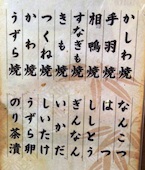 かしわ焼
手羽焼
相鴨焼
すなぎも焼
きも焼
つくね焼
かわ焼
うずら焼
なんこつ
はつ
ししとう
ぎんなん
いかだ
しいたけ
うずら卵
のり茶漬